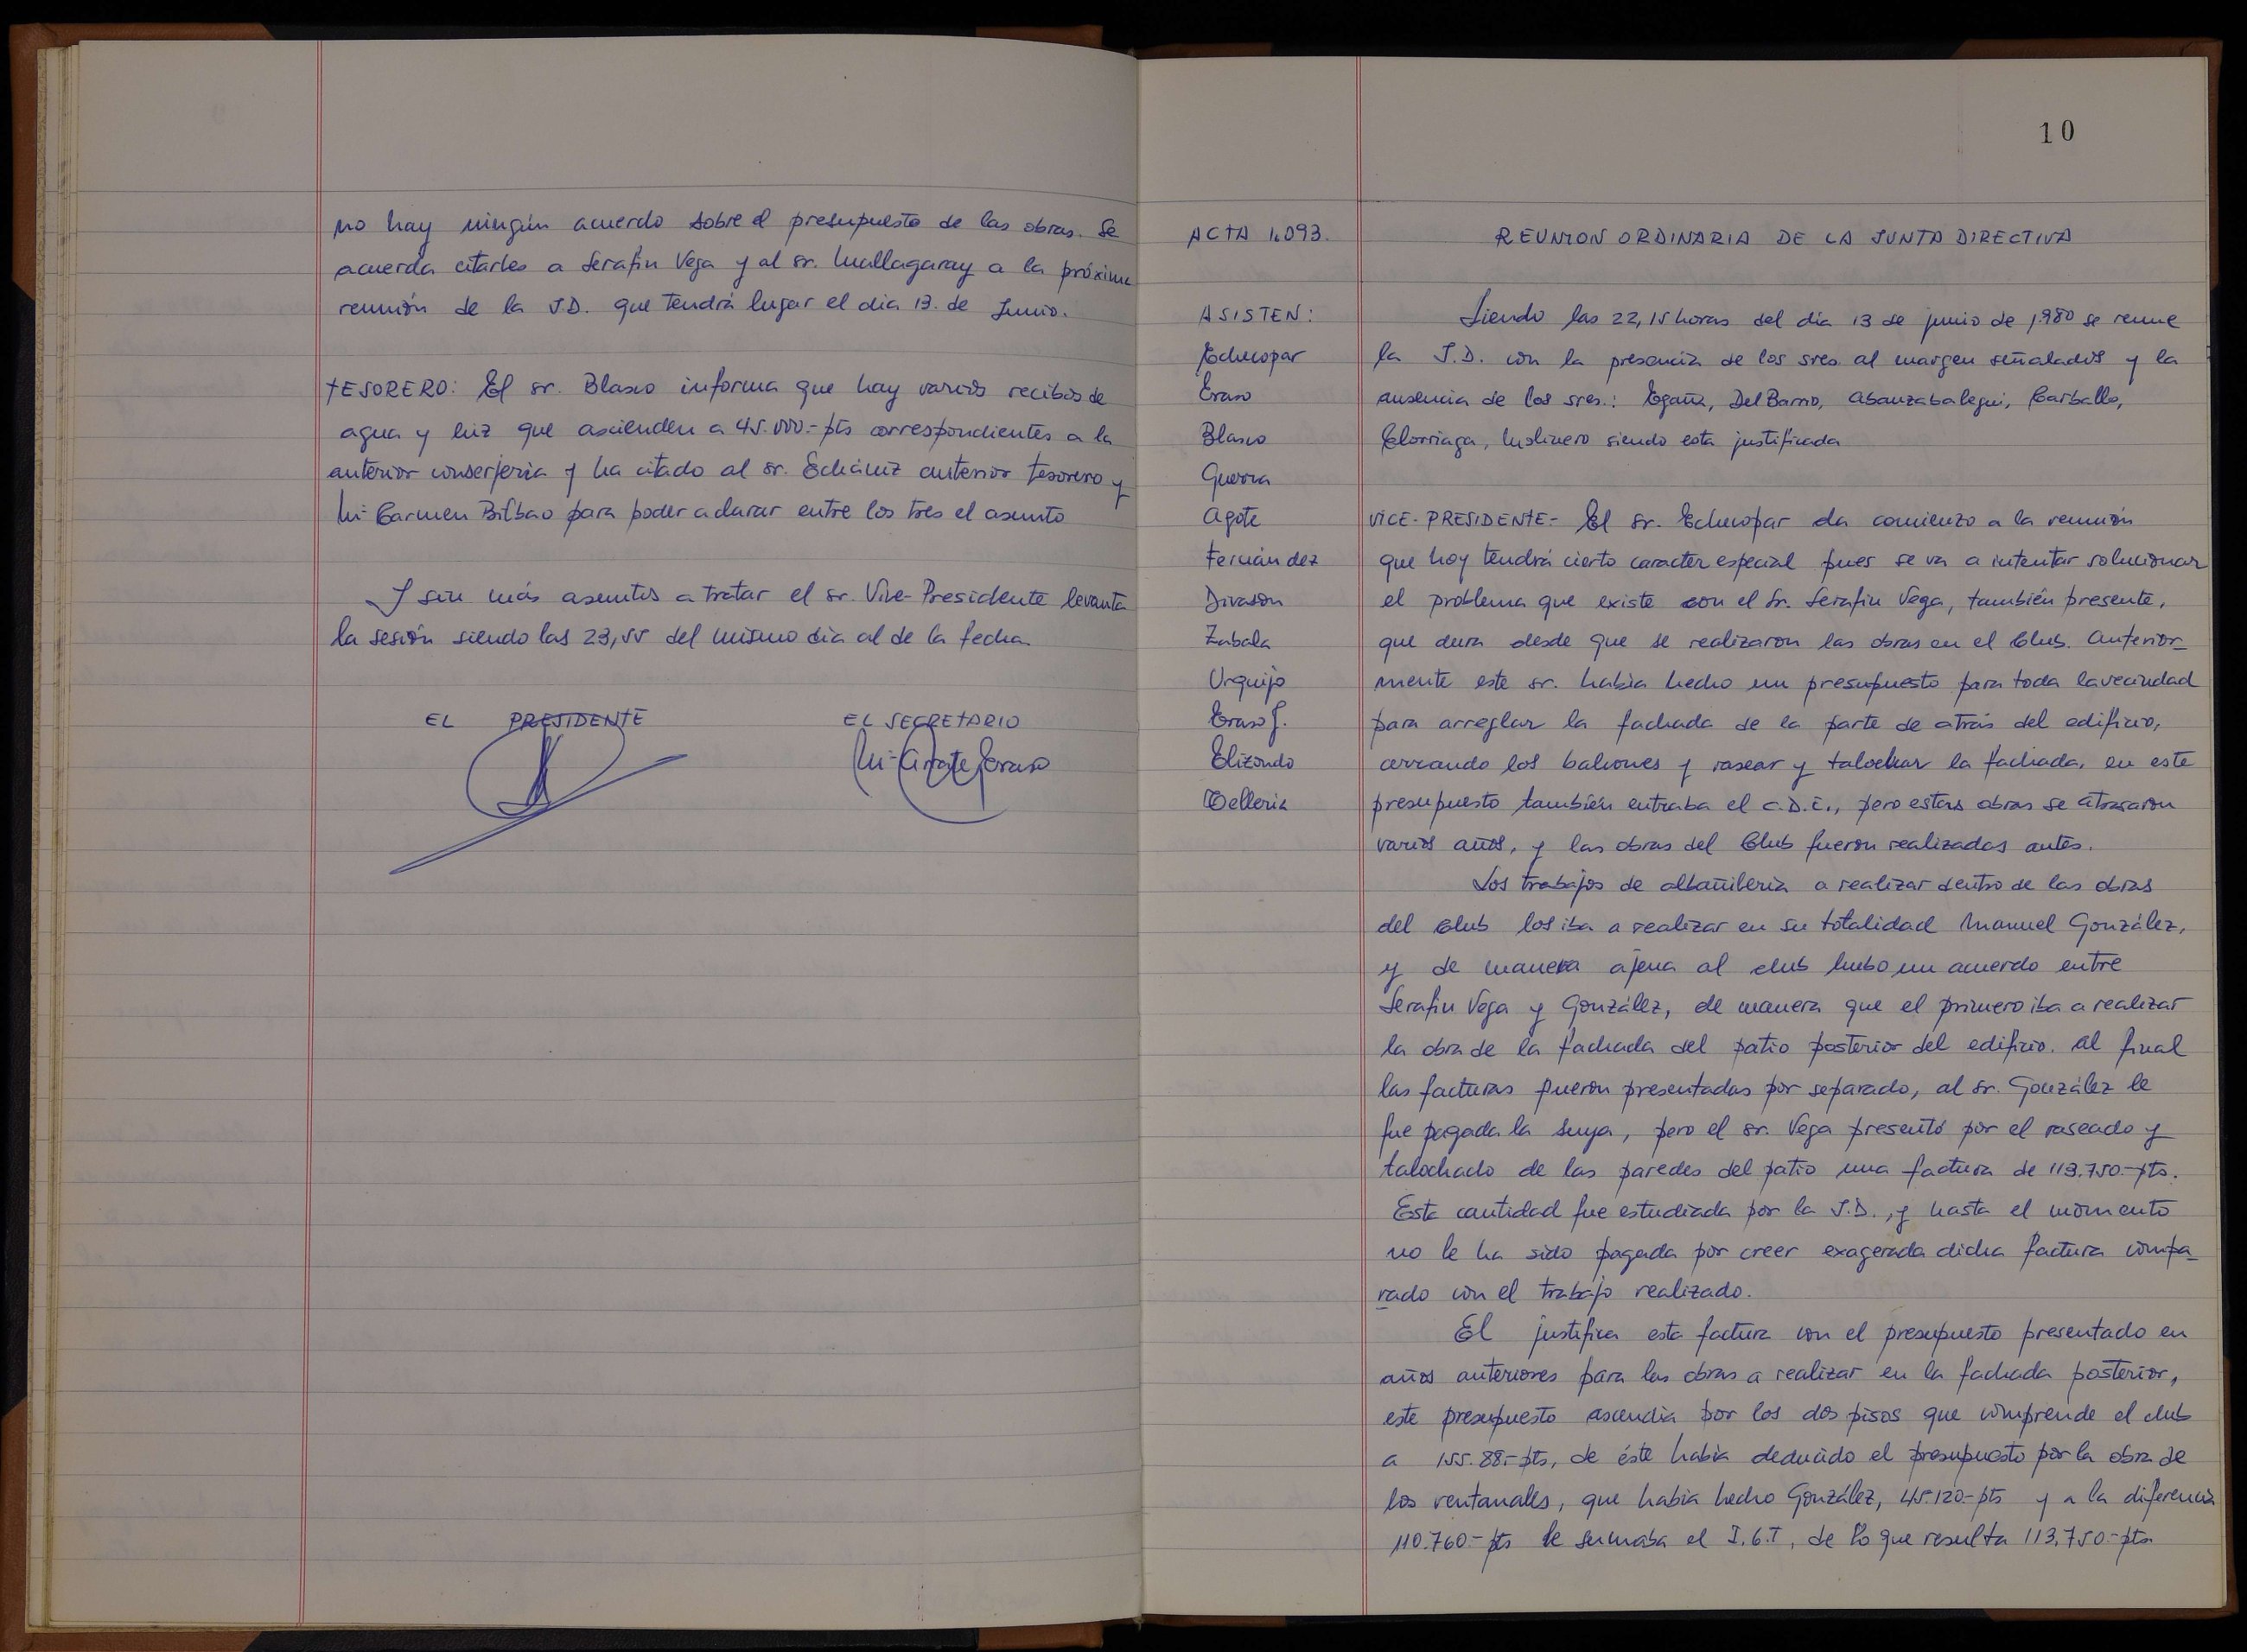 no hay ningún acuerdo sobre el presupuesto de las obras. Se
acuerda citarles a Serafin Vega y al sr. Mallagaray a la próxima
reunión de la J.D. que tendrá lugar el dia 13. de Junio.
TESORERO: El sr. Blasco informa que hay varios recibos de
agua y luz que ascienden a 45.000.- pts correspondientes a la
anterior conserjeria y ha citado al sr. Echániz anterior tesorero y
Mª Carmen Bilbao para poder aclarar entre los tres el asunto
Y sin más asuntos a tratar el sr. Vice-Presidente levanta
la sesión siendo las 23,55 del mismo dia al de la fecha.
EL PRESIDENTE EL SECRETARIO
Mª Arrate Eraso
10
ACTA 1.093. REUNION ORDINARIA DE LA JUNTA DIRECTIVA
ASISTEN:
Echecopar
Eraso
Blasco
Guerra
Agote
Fernández
Divasón
Zabala
Urquijo
Eraso J.
Elizondo
Telleria
Siendo las 22,15 horas del día 13 de junio de 1.980 se reune
la J.D. con la presencia de los sres. al margen señalados y la
ausencia de los sres.: Egaña, Del Barrio, Abanzabalegui, Carballo,
Elorriaga, Molinero siendo esta justificada
VICE-PRESIDENTE.- El Sr. Echecopar da comienzo a la reunión
que hoy tendrá cierto caracter especial pues se va a intentar solucionar
el problema que existe con el Sr. Serafin Vega, también presente,
que dura desde que se realizaron las obras en el Club. Anterior-
mente este sr. habia hecho un presupuesto para toda la vecindad
para arreglar la fachada de la parte de atrás del edificio,
cerrando los balcones y rasear y talochar la fachada, en este
presupuesto también entraba el C.D.E., pero estas obras se atrasaron
varios años, y las obras del Club fueron realizadas antes.
Los trabajos de albañileria a realizar dentro de las obras
del Club los iba a realizar en su totalidad Manuel González,
y de manera ajena al club hubo un acuerdo entre
Serafin Vega y González, de manera que el primero iba a realizar
la obra de la fachada del patio posterior del edificio. Al final
las facturas fueron presentadas por separado, al sr. González le
fue pagada la suya, pero el sr. Vega presentó por el raseado y
talochado de las paredes del patio una factura de 113.750.- pts.
Esta cantidad fue estudiada por la J.D., y hasta el momento
no le ha sido pagada por creer exagerada dicha factura compa-
rado con el trabajo realizado.
El justifica esta factura con el presupuesto presentado en
años anteriores para las obras a realizar en la fachada posterior,
este presupuesto ascendia por los dos pisos que comprende el club
a 155.88.- pts, de éste habia deducido el presupuesto por la obra de
los ventanales, que habia hecho González, 45.120.- pts y a la diferencia
110.760.- pts le sumaba el I.G.T, de lo que resulta 113.750.- pts.